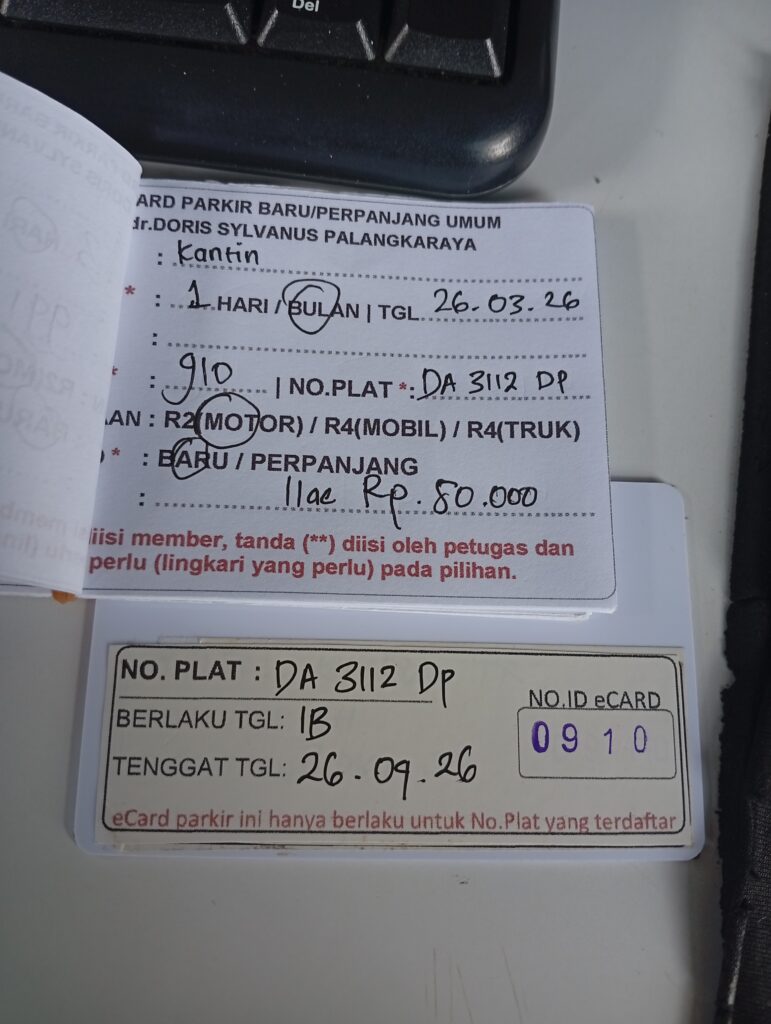 Del
ARD PARKIR BARU/PERPANJANG UMUM
dr.DORIS SYLVANUS PALANGKARAYA
: Kantin
* : 1 HARI / BULAN | TGL 26.03.26
:
* : 910 | NO.PLAT *: DA 3112 DP
AAN : R2(MOTOR) / R4(MOBIL) / R4(TRUK)
* : BARU / PERPANJANG
: Rp. 80.000
diisi member, tanda (**) diisi oleh petugas dan
perlu (lingkari yang perlu) pada pilihan.
NO. PLAT : DA 3112 DP
NO.ID eCARD
BERLAKU TGL: 1B
0910
TENGGAT TGL: 26.09.26
eCard parkir ini hanya berlaku untuk No.Plat yang terdaftar